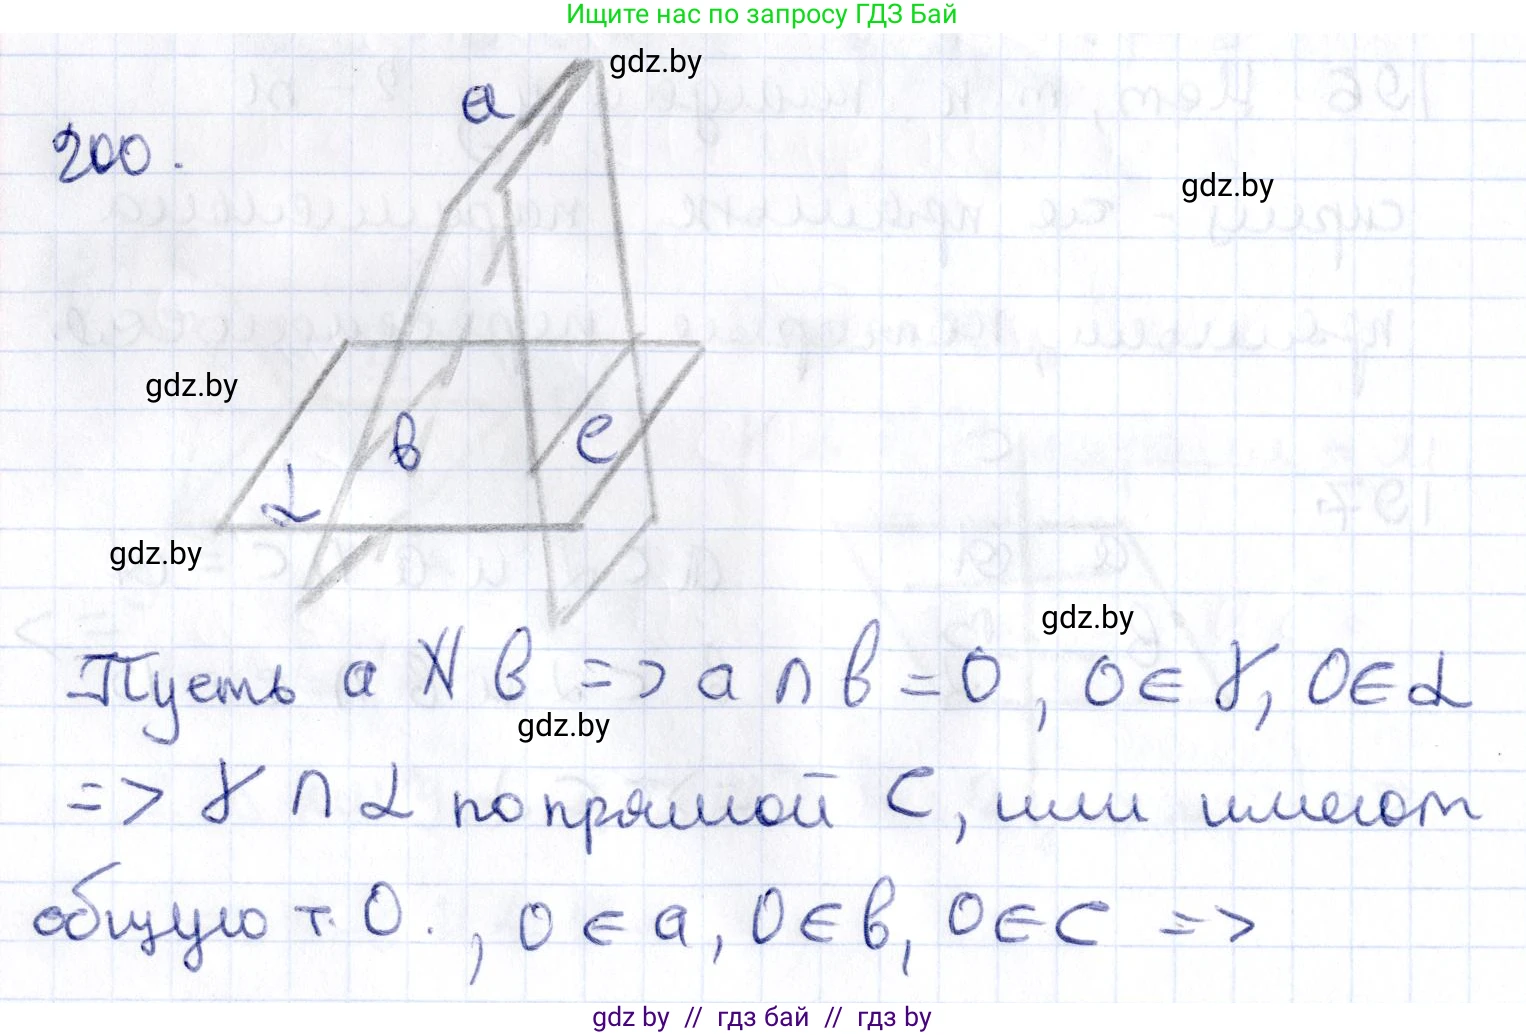 Ищите нас по запросу ГДЗ Бай
gdz.by
a
200.
gdz.by
gdz.by
в
с
α
gdz.by
gdz.by
Пусть a ∦ b => a ∩ b = O, O ∈ γ, O ∈ α
gdz.by
=> γ ∩ α по прямой C, или имеют
общую т. O., O ∈ a, O ∈ b, O ∈ C =>
gdz by // гдз бай // гдз by